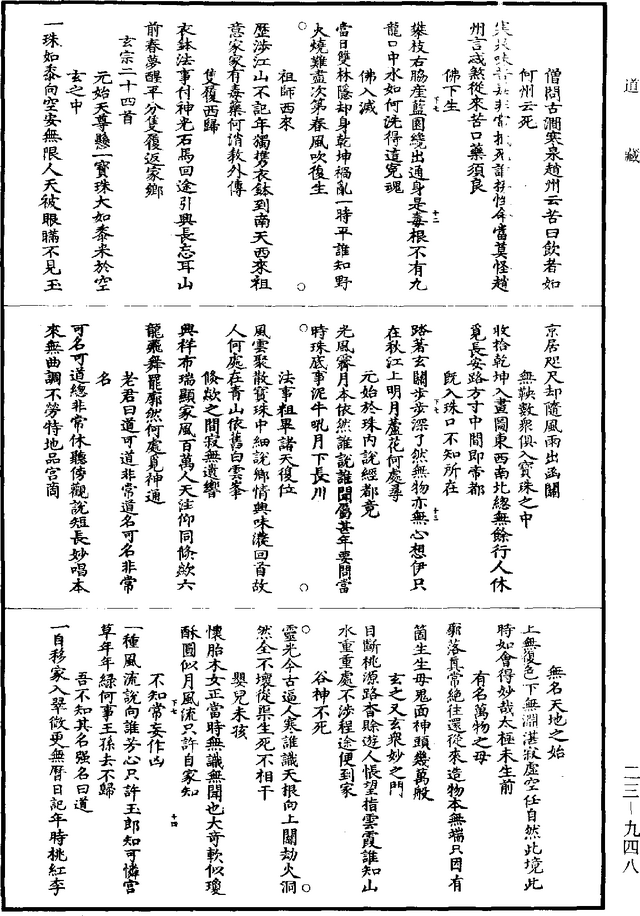 道藏
僧問古澗寒泉趙州云苦曰飲者如
何州云死
州言惑煞從來苦口藥須良
佛下生
攀枝右脇產藍園繞出通身是毒根不有九
龍口中水如何洗得這冤魂
佛入滅
當日雙林隱却身乾坤禍亂一時平誰知野
火燒難盡次第春風吹復生
祖師西來
歷涉江山不記年獨携衣鉢到南天西來祖
意家家有毒藥何消教外傳
隻履西歸
衣鉢法事付神光石馬回途引興長忘耳山
前春夢醒平分隻履返家鄉
玄宗二十四首
元始天尊懸一寶珠大如黍米於空
玄之中
一珠如黍向空安無限人天被眼瞞不見玉
京居咫尺却隨風雨出函關
無鞅數衆俱入寶珠之中
收拾乾坤入畫圖東西南北總無餘行人休
覓長安路方寸中間即帝都
既入珠口不知所在
路著玄關步步深了然無物亦無心想伊只
在秋江上明月蘆花何處尋
元始於珠內說經都竟
光風霽月本依然誰說誰聞屬甚年要問當
時珠底事泥牛吼月下長川
法事粗畢諸天復位
風雲聚散寶珠中細說鄉情興味濃回首故
人何處在青山依舊白雲峯
倏歘之間寂無遺響
興祥布瑞顯家風百萬人天注仰同倏歘六
龍飛舞罷廓然何處覓神通
老君曰道可道非常道名可名非常
名
可名可道總非常休聽傍觀說短長妙唱本
來無曲調不勞特地品宮商
無名天地之始
上無復色下無淵湛寂虛空任自然此境此
時如會得妙哉太極未生前
有名萬物之母
廓落真常絶往還從來造物本無端只因有
箇生生母鬼面神頭幾萬般
玄之又玄衆妙之門
目斷桃源路杳賒遊人悵望指雲霞誰知山
水重重處不涉程途便到家
谷神不死
靈光今古逼人寒誰識天根向上關劫火洞
然全不壞從渠生死不相干
嬰兒未孩
懷胎木女正當時無識無聞也大奇軟似瓊
酥圓似月風流只許自家知
不知常妄作凶
一種風流說向誰芳心只許玉郎知可憐宮
草年年綠何事王孫去不歸
吾不知其名强名曰道
一自移家入翠微更無曆日記年時桃紅李
下七
十二
下七
十三
下七
十四
二三—九四八